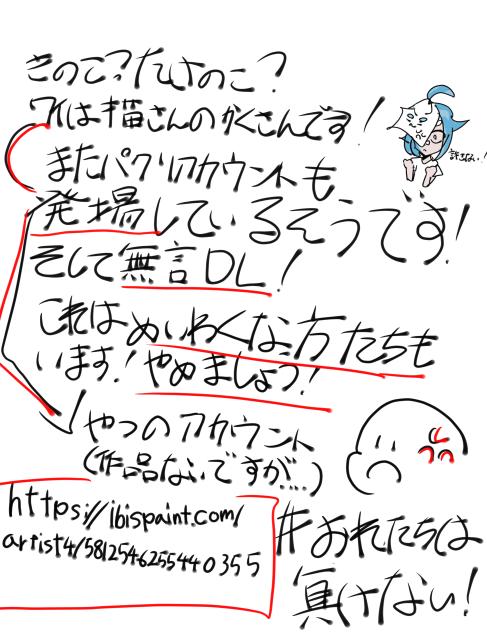 きのこ？たけのこ？
ワイは猫さんのかくさんです！
許さない！
またパクリアカウントも
発場しているそうです！
そして無言DL！
これはめいわくな方たちも
います！やめましょう！
やつのアカウント
(作品ないですが…)
https://ibispaint.com/
artist4/5812546255440355
#おれたちは
負けない！